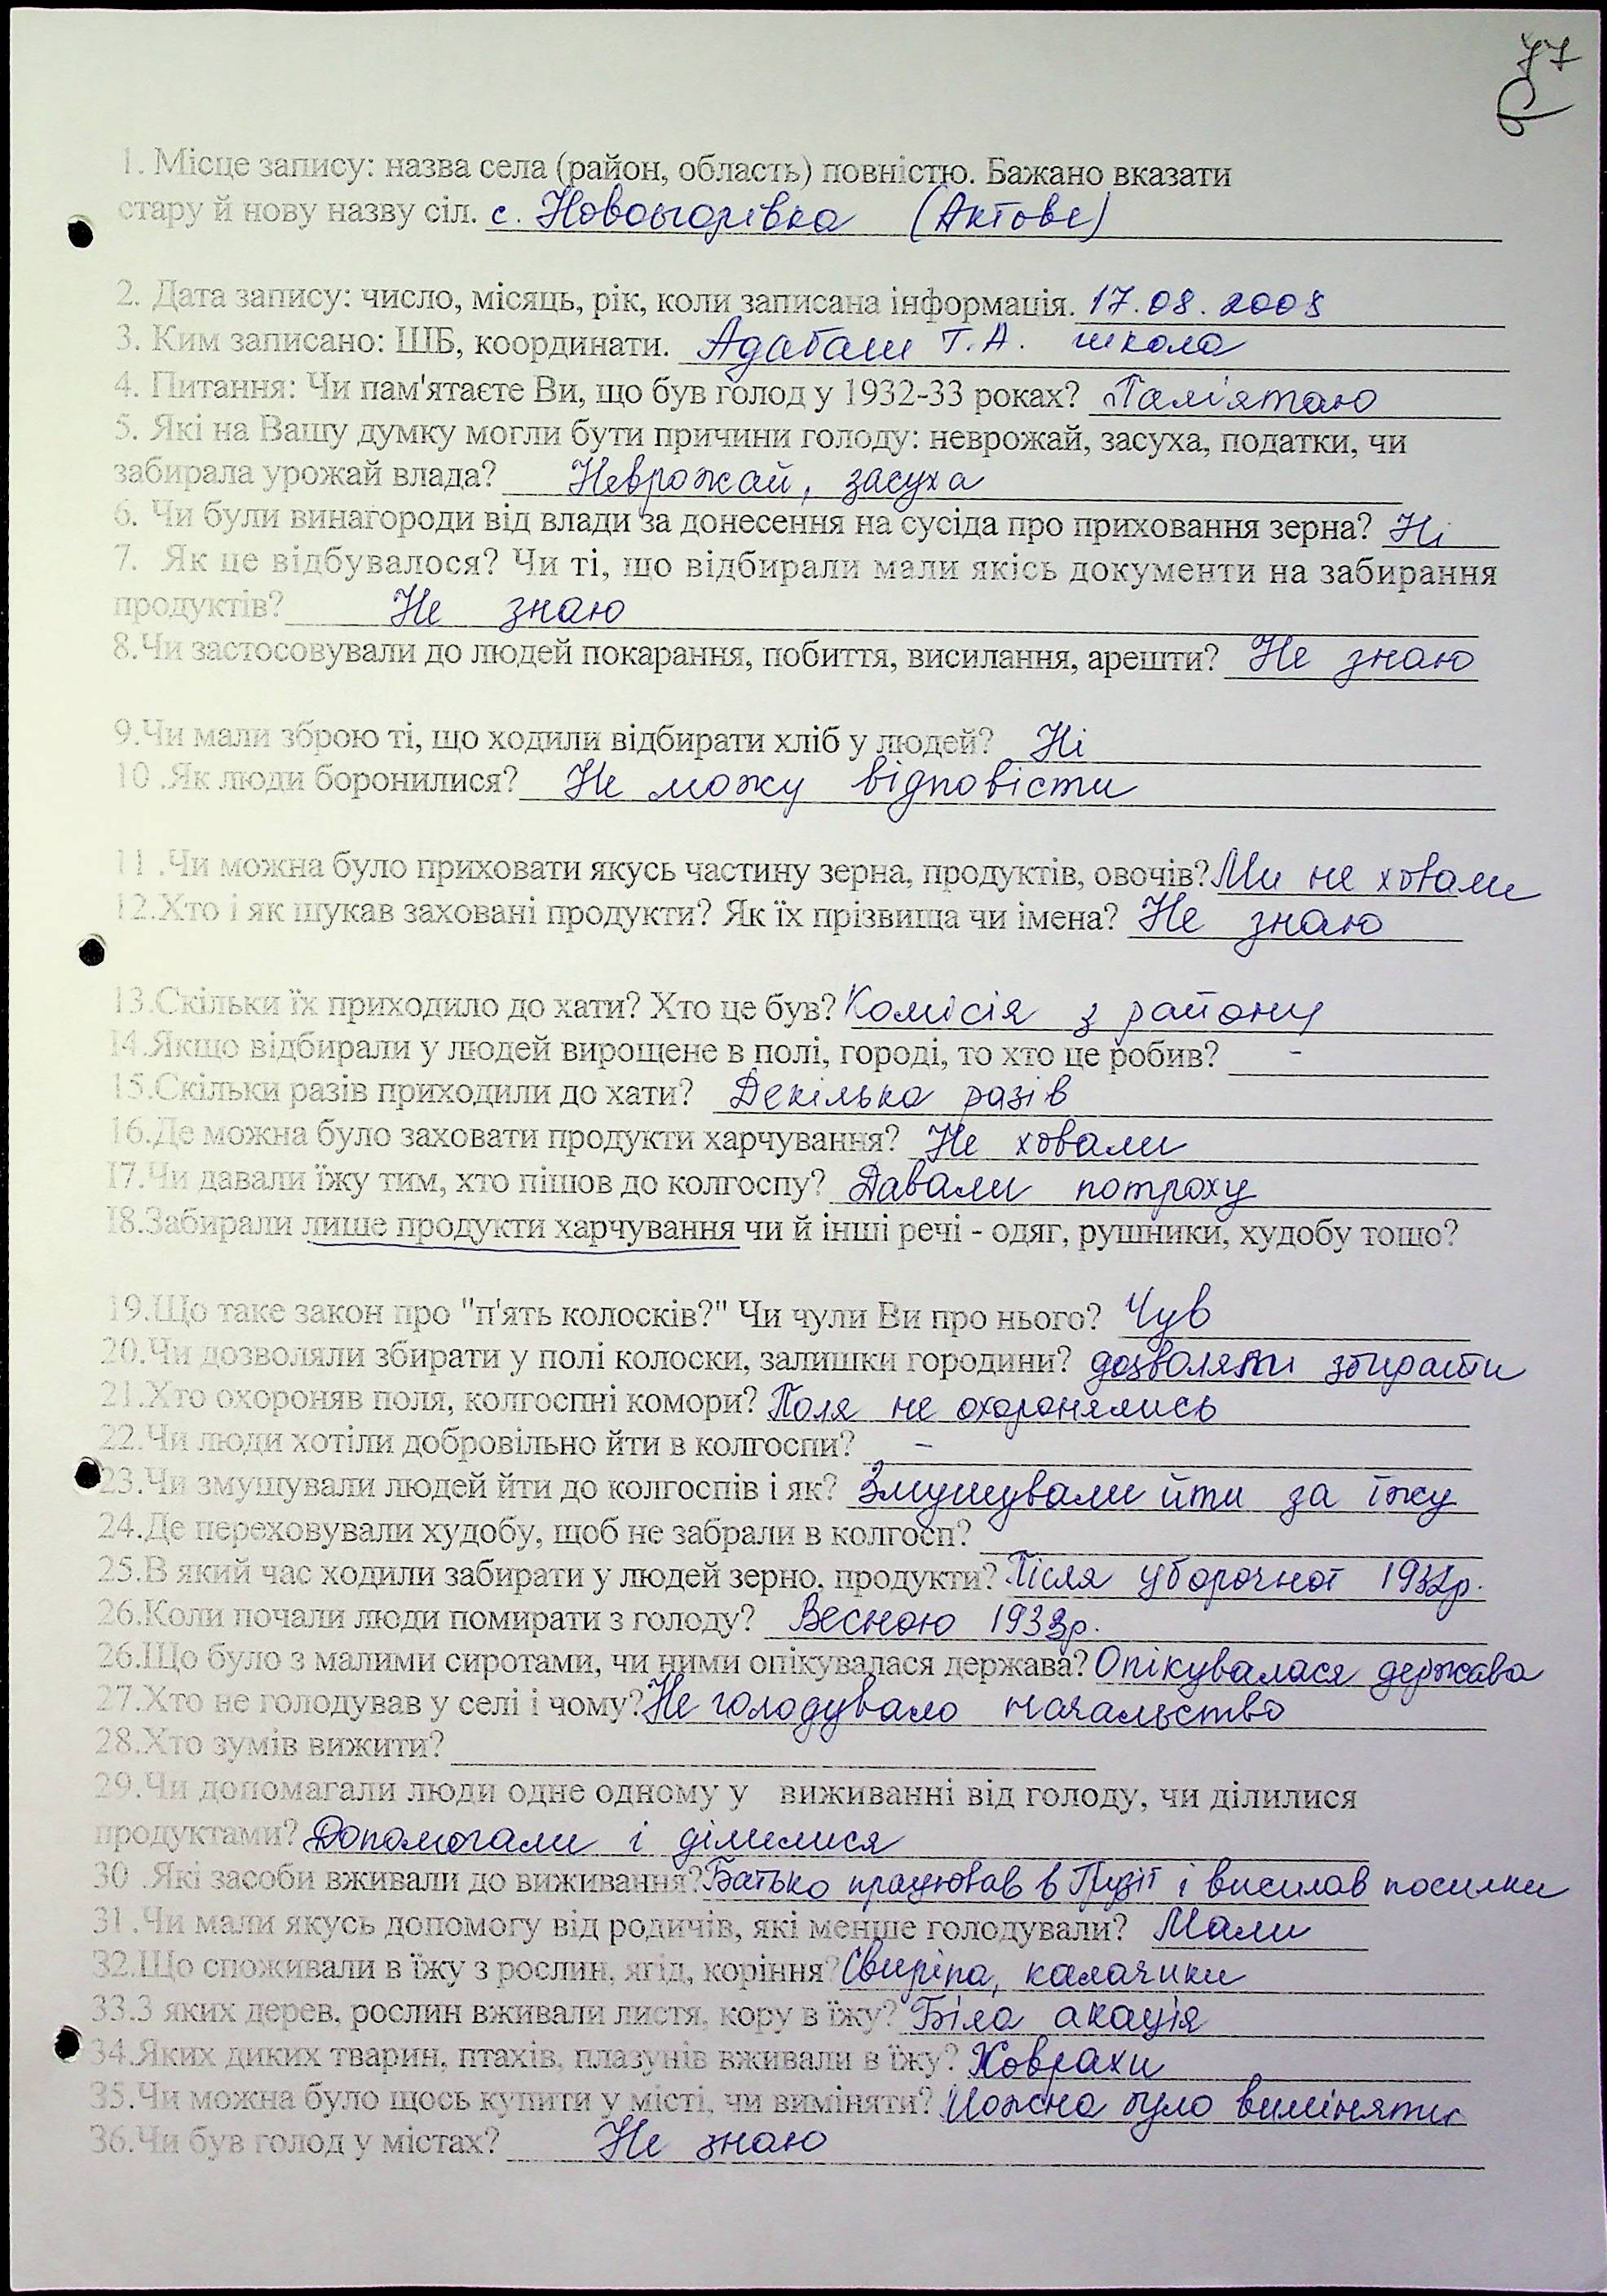 77
1. Місце запису: назва села (район, область) повністю. Бажано вказати
стару й нову назву сіл. с. Новоигорівка (Актове)
2. Дата запису: число, місяць, рік, коли записана інформація. 17.08.2008
3. Ким записано: ШБ, координати. Адабаш Т.А. школа
4. Питання: Чи пам'ятаєте Ви, що був голод у 1932-33 роках? Пам'ятаю
5. Які на Вашу думку могли бути причини голоду: неврожай, засуха, податки, чи
забирала урожай влада? Неврожай, засуха
6. Чи були винагороди від влади за донесення на сусіда про приховання зерна? Ні
7. Як це відбувалося? Чи ті, що відбирали мали якісь документи на забирання
продуктів? Не знаю
8.Чи застосовували до людей покарання, побиття, висилання, арешти? Не знаю
9.Чи мали зброю ті, що ходили відбирати хліб у людей? Ні
10 .Як люди боронилися? Не можу відповісти
11 .Чи можна було приховати якусь частину зерна, продуктів, овочів? Ми не ховали
12.Хто і як шукав заховані продукти? Як їх прізвища чи імена? Не знаю
13.Скільки їх приходило до хати? Хто це був? Комісія з району
14.Якщо відбирали у людей вирощене в полі, городі, то хто це робив? -
15.Скільки разів приходили до хати? Декілька разів
16.Де можна було заховати продукти харчування? Не ховали
17.Чи давали їжу тим, хто пішов до колгоспу? Давали потроху
18.Забирали лише продукти харчування чи й інші речі - одяг, рушники, худобу тощо?
19.Що таке закон про "п'ять колосків?" Чи чули Ви про нього? Чув
20.Чи дозволяли збирати у полі колоски, залишки городини? дозволяли збирати
21.Хто охороняв поля, колгоспні комори? Поля не охоронялись
22.Чи люди хотіли добровільно йти в колгоспи? -
23.Чи змушували людей йти до колгоспів і як? Змушували йти за їжу
24.Де переховували худобу, щоб не забрали в колгосп?
25.В який час ходили забирати у людей зерно, продукти? Після уборочної 1932р.
26.Коли почали люди помирати з голоду? Весною 1933р.
26.Що було з малими сиротами, чи ними опікувалася держава? Опікувалася держава
27.Хто не голодував у селі і чому? Не голодувало начальство
28.Хто зумів вижити?
29.Чи допомагали люди одне одному у виживанні від голоду, чи ділилися
продуктами? Допомогали і ділилися
30 .Які засоби вживали до виживання? Батько працював в Грузії і висилав посилки
31.Чи мали якусь допомогу від родичів, які менше голодували? Мали
32.Що споживали в їжу з рослин, ягід, коріння? Свиріпа, калачики
33.З яких дерев, рослин вживали листя, кору в їжу? Біла акація
34.Яких диких тварин, птахів, плазунів вживали в їжу? Ховрахи
35.Чи можна було щось купити у місті, чи виміняти? Можна було виміняти
36.Чи був голод у містах? Не знаю